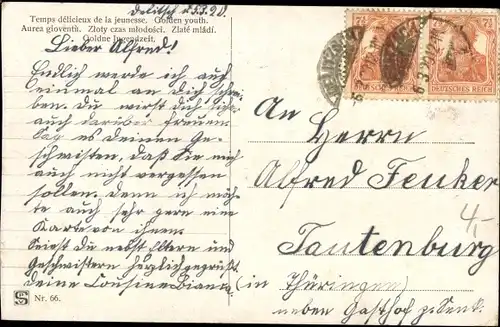 Delitzsch d. 5.3.20.
Temps délicieux de la jeunesse. Golden youth.
Aurea gioventù. Złoty czas młodości. Zlaté mládí.
Goldne Jugendzeit.
Lieber Alfred!
Endlich werde ich auch
einmal an Dich schrei-
ben. Du wirst Dich sicher
auch darüber freuen.
Sag es deinen Ge-
schwistern, daß Sie mich
auch nicht vergessen
sollen. Denn ich möch-
te auch sehr gern eine
Karte von ihnen.
Seiest Du nebst Eltern und
Geschwistern herzlich gegrüßt
deine Cousine Bianca
Nr. 66.
DEUTSCHES REICH
DEUTSCHES REICH
An Herrn
Alfred Feuker
4,-
Tautenburg
(in Thüringen)
neben Gasthof z.